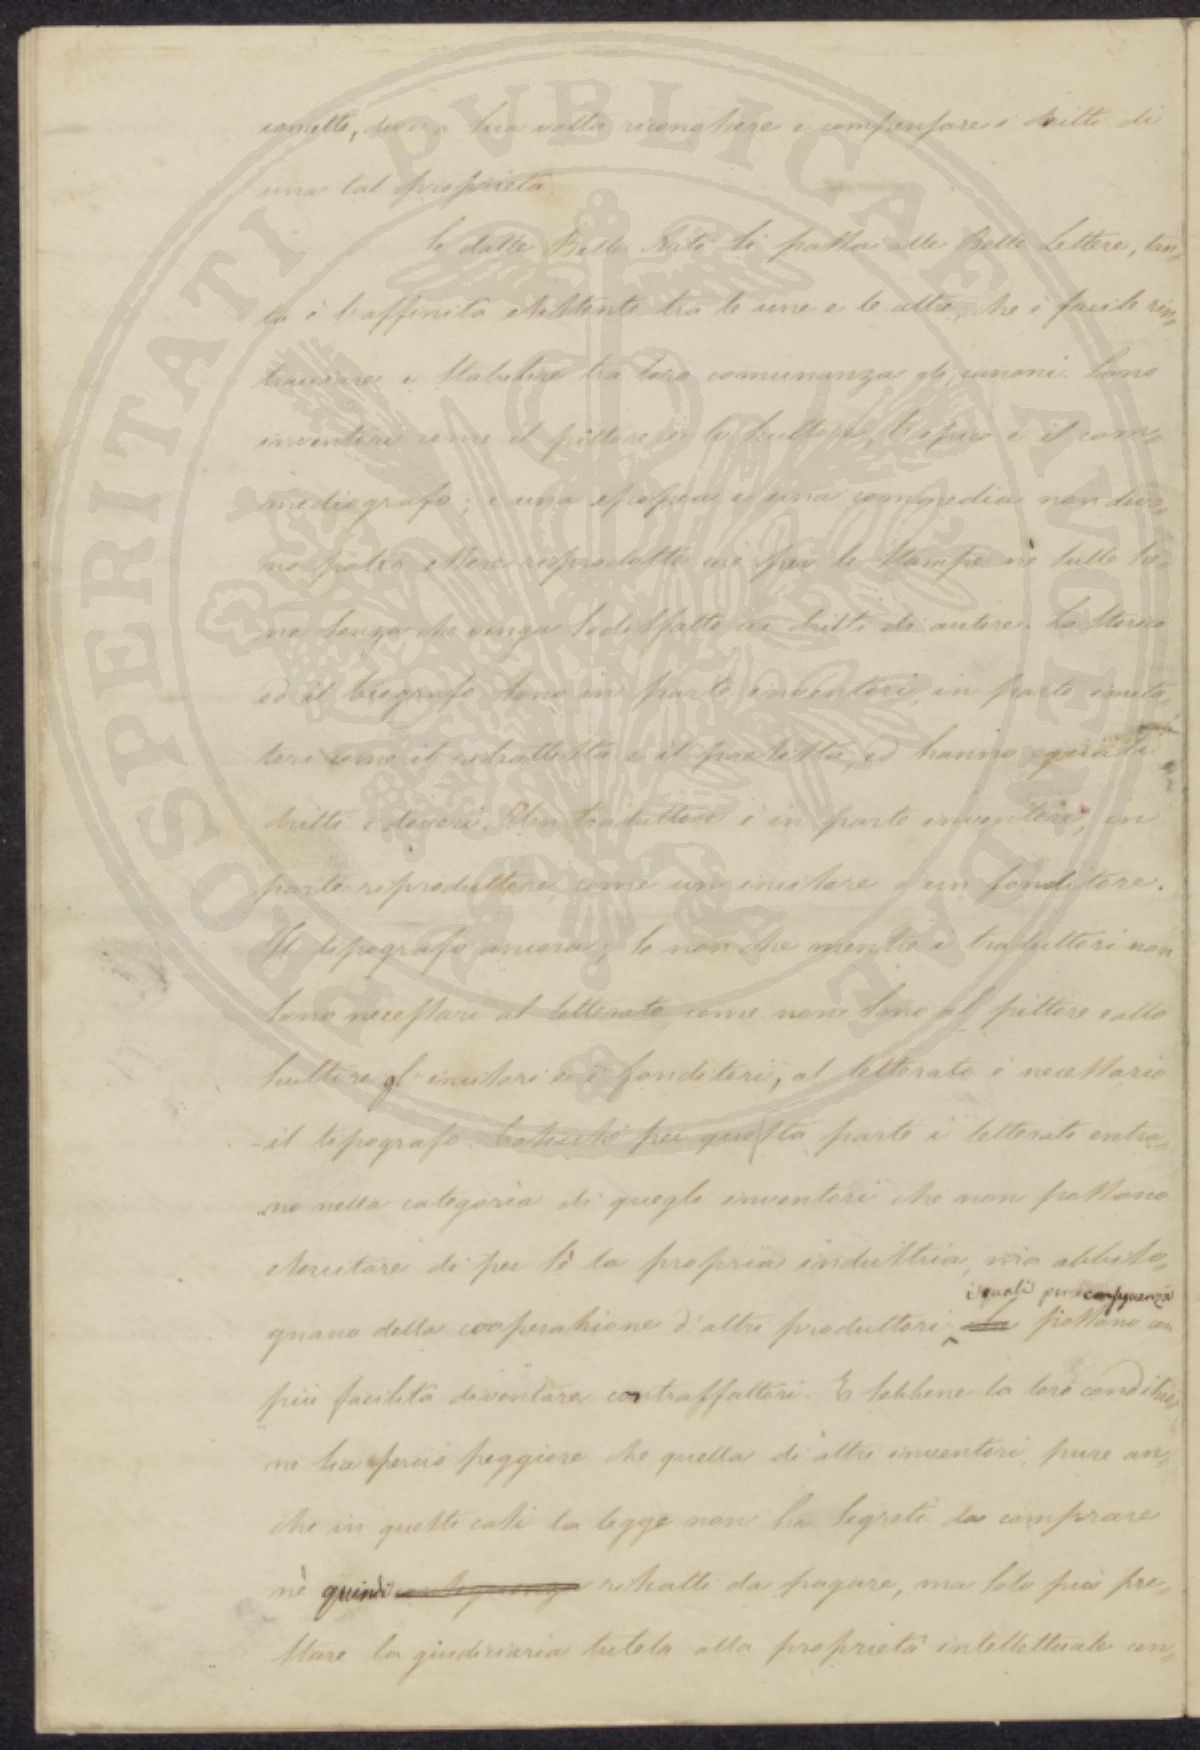 cometto, deve a sua volta riconoscere e compensare i dritti di
una tal proprietà.
Se dalle Belle Arti si passa alle Belle Lettere, tan=
ta è l'affinità esistente tra le une e le altre, che è facile rin=
tracciare e stabilire tra loro comunanza di canoni. Sono
inventori come il pittore e lo scultore, l'epico e il com=
mediografo; e una epopea e una commedia non devo=
no poter essere riprodotte nè per le stampe nè sulle sce=
ne senza che venga sodisfatto ai dritti di autore. Lo storico
ed il biografo sono in parte inventori, in parte imita=
tori come il ritrattista e il paesista, ed hanno eguali
dritti e doveri. Un traduttore è in parte inventore, in
parte riproduttore, come un incisore o un fonditore.
Il tipografo ancora; se non che mentre i traduttori non
sono necessari al letterato, come non sono al pittore e allo
scultore gl'incisori e i fonditori, al letterato è necessario
il tipografo. Cosicchè per questa parte i letterati entra=
no nella categoria di quegli inventori che non possono
esercitare di per sè la propria industria, ma abbiso=
i quali per conseguenza
gnano della cooperazione d'altri produttori, possono con
più facilità diventare contraffattori. E sebbene la loro condizio=
ne sia perciò peggiore che quella di altri inventori, pure an=
che in questi casi la legge non ha segreti da comprare
nè quindi riscatti da pagare, ma solo può pre=
stare la giudiziaria tutela alla proprietà intellettuale con=
PROSPERITATI PVBLICAE AVGENDAE